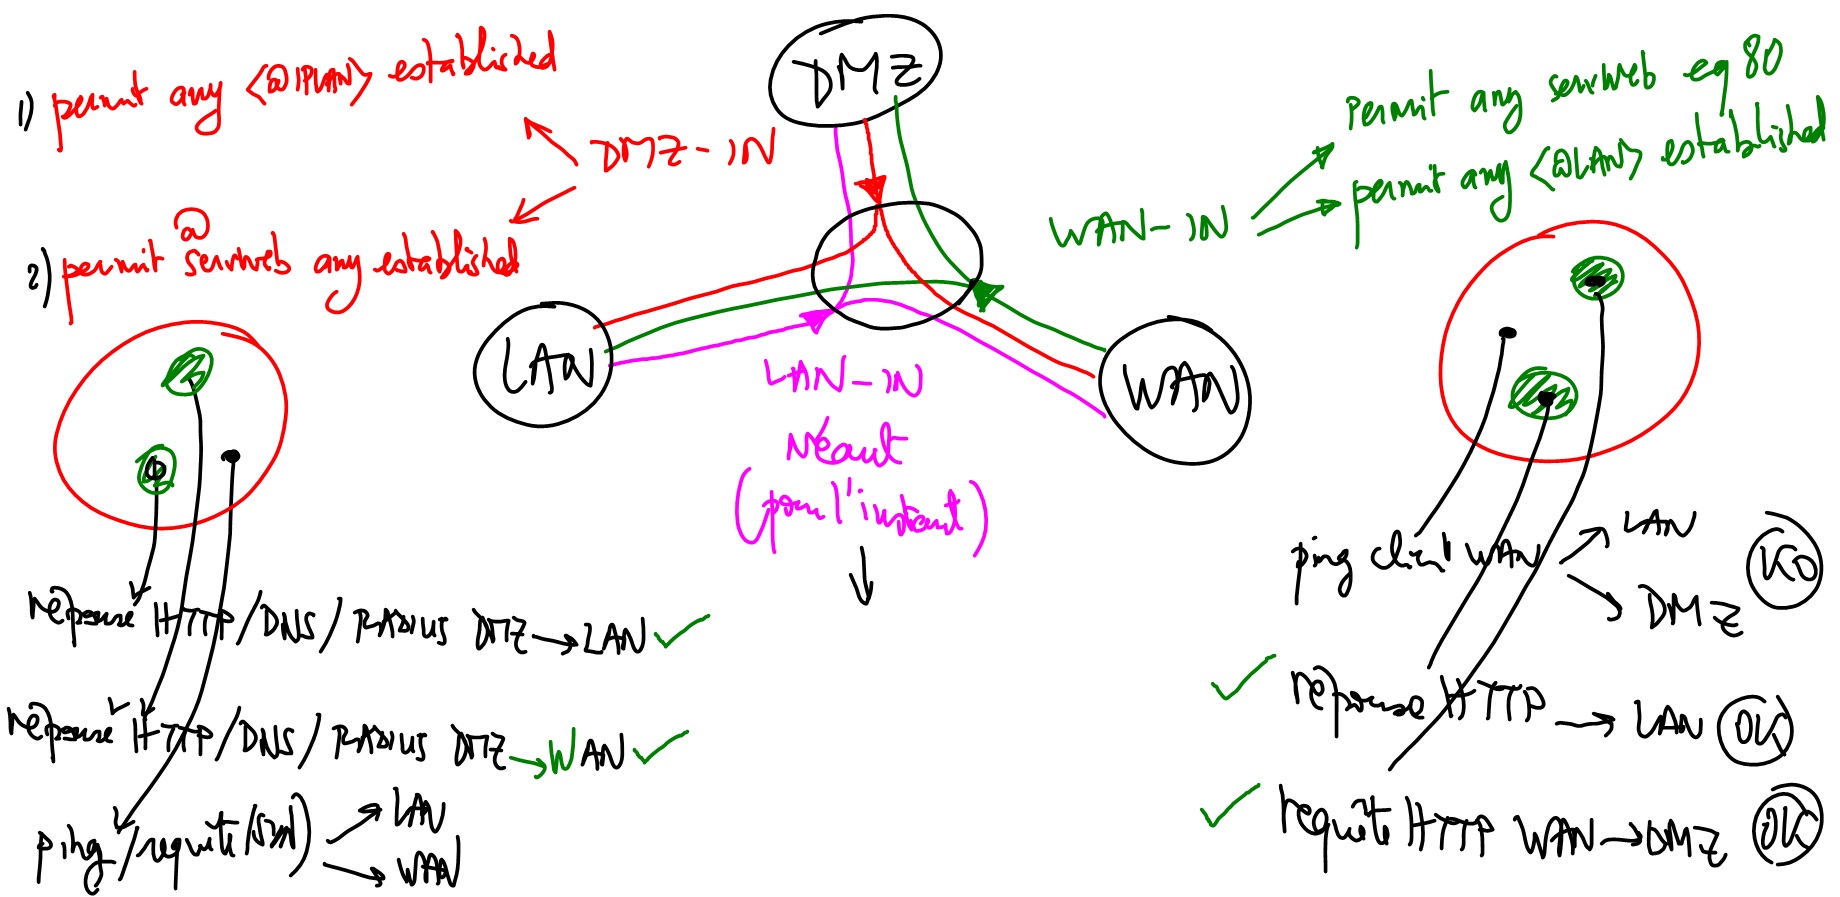 1) permit any <@IPLAN> established
DMZ-IN
2) permit @servweb any established
DMZ
LAN
WAN
LAN-IN
Néant
(pour l'instant)
WAN-IN
Permit any servweb eq 80
permit any <@LAN> established
réponse HTTP/DNS/RADIUS DMZ→LAN ✓
réponse HTTP/DNS/RADIUS DMZ→WAN ✓
ping/requête(SYN)
LAN
WAN
ping client WAN
LAN
DMZ
KO
✓ réponse HTTP → LAN OK
✓ requête HTTP WAN→DMZ OK